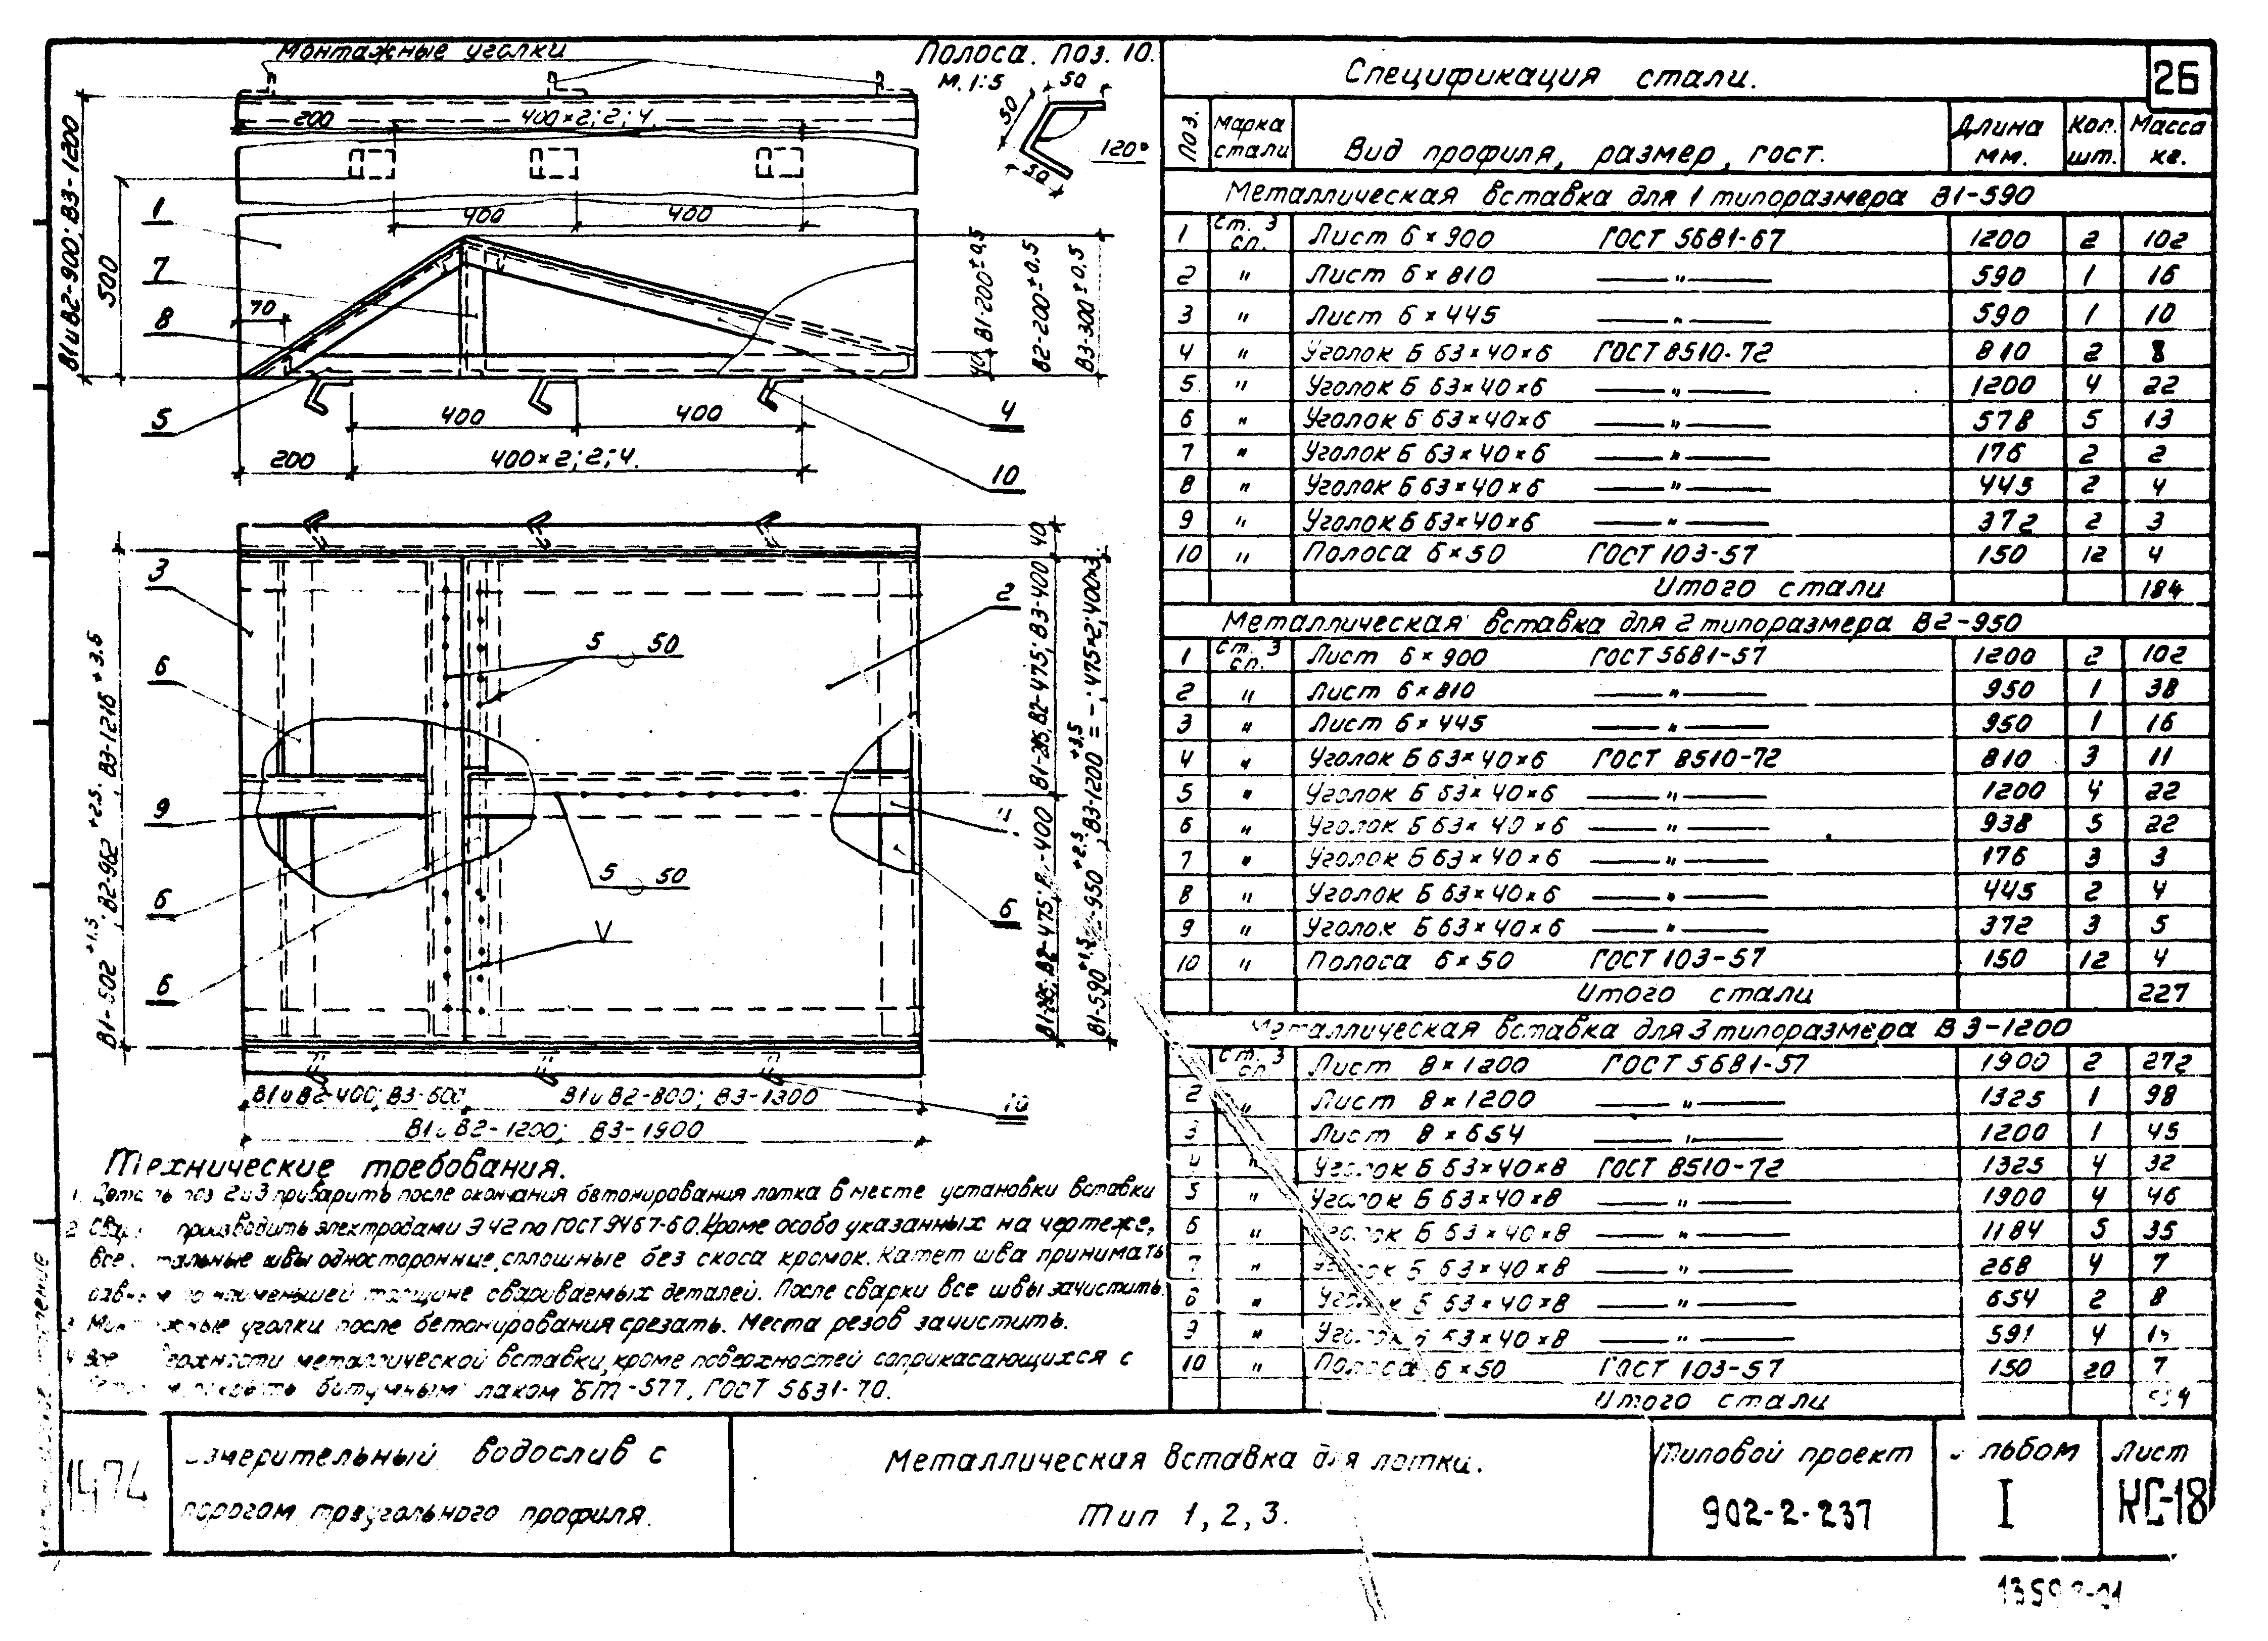 Монтажные уголки
Полоса. Поз. 10.
М. 1:5
50
50
50
120°
200
400×2; 2; 4.
В1 и В2-900; В3-1200
500
1
7
8
70
5
400
400
40
В1-200±0,5
В2-200±0,5
В3-300±0,5
4
400
400
200
400×2; 2; 4.
10
3
6
9
6
6
5 50
5 50
V
2
6
10
40
В1-590
В1 и В2-400; В3-600
В1 и В2-800; В3-1300
В2-1200; В3-1900
Технические требования.
1. поз 2 и 3 приварить после окончания бетонирования лотка в месте установки вставки
2. производить электродами Э42 по ГОСТ 9467-60. Кроме особо указанных на чертеже,
все швы односторонние, сплошные без скоса кромок. Катет шва принимать
наименьшей толщине свариваемых деталей. После сварки все швы зачистить.
3 уголки после бетонирования срезать. Места резов зачистить.
4 металлической вставки, кроме поверхностей соприкасающихся с
битумным лаком БТ-577, ГОСТ 5631-70.
Спецификация стали.
26
Поз. Марка стали Вид профиля, размер, гост. Длина мм. Кол. шт. Масса кг.
Металлическая вставка для 1 типоразмера В1-590
1 Ст. 3 сп. Лист 6×900 ГОСТ 5681-67 1200 2 102
2 " Лист 6×810 —"— 590 1 16
3 " Лист 6×445 —"— 590 1 10
4 " Уголок Б 63×40×6 ГОСТ 8510-72 810 2 8
5 " Уголок Б 63×40×6 —"— 1200 4 22
6 " Уголок Б 63×40×6 —"— 578 5 13
7 " Уголок Б 63×40×6 —"— 176 2 2
8 " Уголок Б 63×40×6 —"— 445 2 4
9 " Уголок Б 63×40×6 —"— 372 2 3
10 " Полоса 6×50 ГОСТ 103-57 150 12 4
Итого стали 184
Металлическая вставка для 2 типоразмера В2-950
1 Ст. 3 сп. Лист 6×900 ГОСТ 5681-57 1200 2 102
2 " Лист 6×810 —"— 950 1 38
3 " Лист 6×445 —"— 950 1 16
4 " Уголок Б 63×40×6 ГОСТ 8510-72 810 3 11
5 " Уголок Б 63×40×6 —"— 1200 4 22
6 " Уголок Б 63×40×6 —"— 938 5 22
7 " Уголок Б 63×40×6 —"— 176 3 3
8 " Уголок Б 63×40×6 —"— 445 2 4
9 " Уголок Б 63×40×6 —"— 372 3 5
10 " Полоса 6×50 ГОСТ 103-57 150 12 4
Итого стали 227
Металлическая вставка для 3 типоразмера В3-1200
Ст. 3 сп Лист 8×1200 ГОСТ 5681-57 1900 2 272
2 " Лист 8×1200 —"— 1325 1 98
3 Лист 8×654 —"— 1200 1 45
4 " Уголок Б 63×40×8 ГОСТ 8510-72 1325 4 32
5 " Уголок Б 63×40×8 —"— 1900 4 46
6 " Уголок Б 63×40×8 —"— 1184 5 35
7 " Уголок Б 63×40×8 —"— 268 4 7
8 " Уголок Б 63×40×8 —"— 654 2 8
9 " Уголок Б 63×40×8 —"— 591 4
10 " Полоса 6×50 ГОСТ 103-57 150 20 7
Итого стали
1974
водослив с
порогом треугольного профиля.
Металлическая вставка для лотки.
Тип 1, 2, 3.
Типовой проект
902-2-237
I
Лист
КС-18